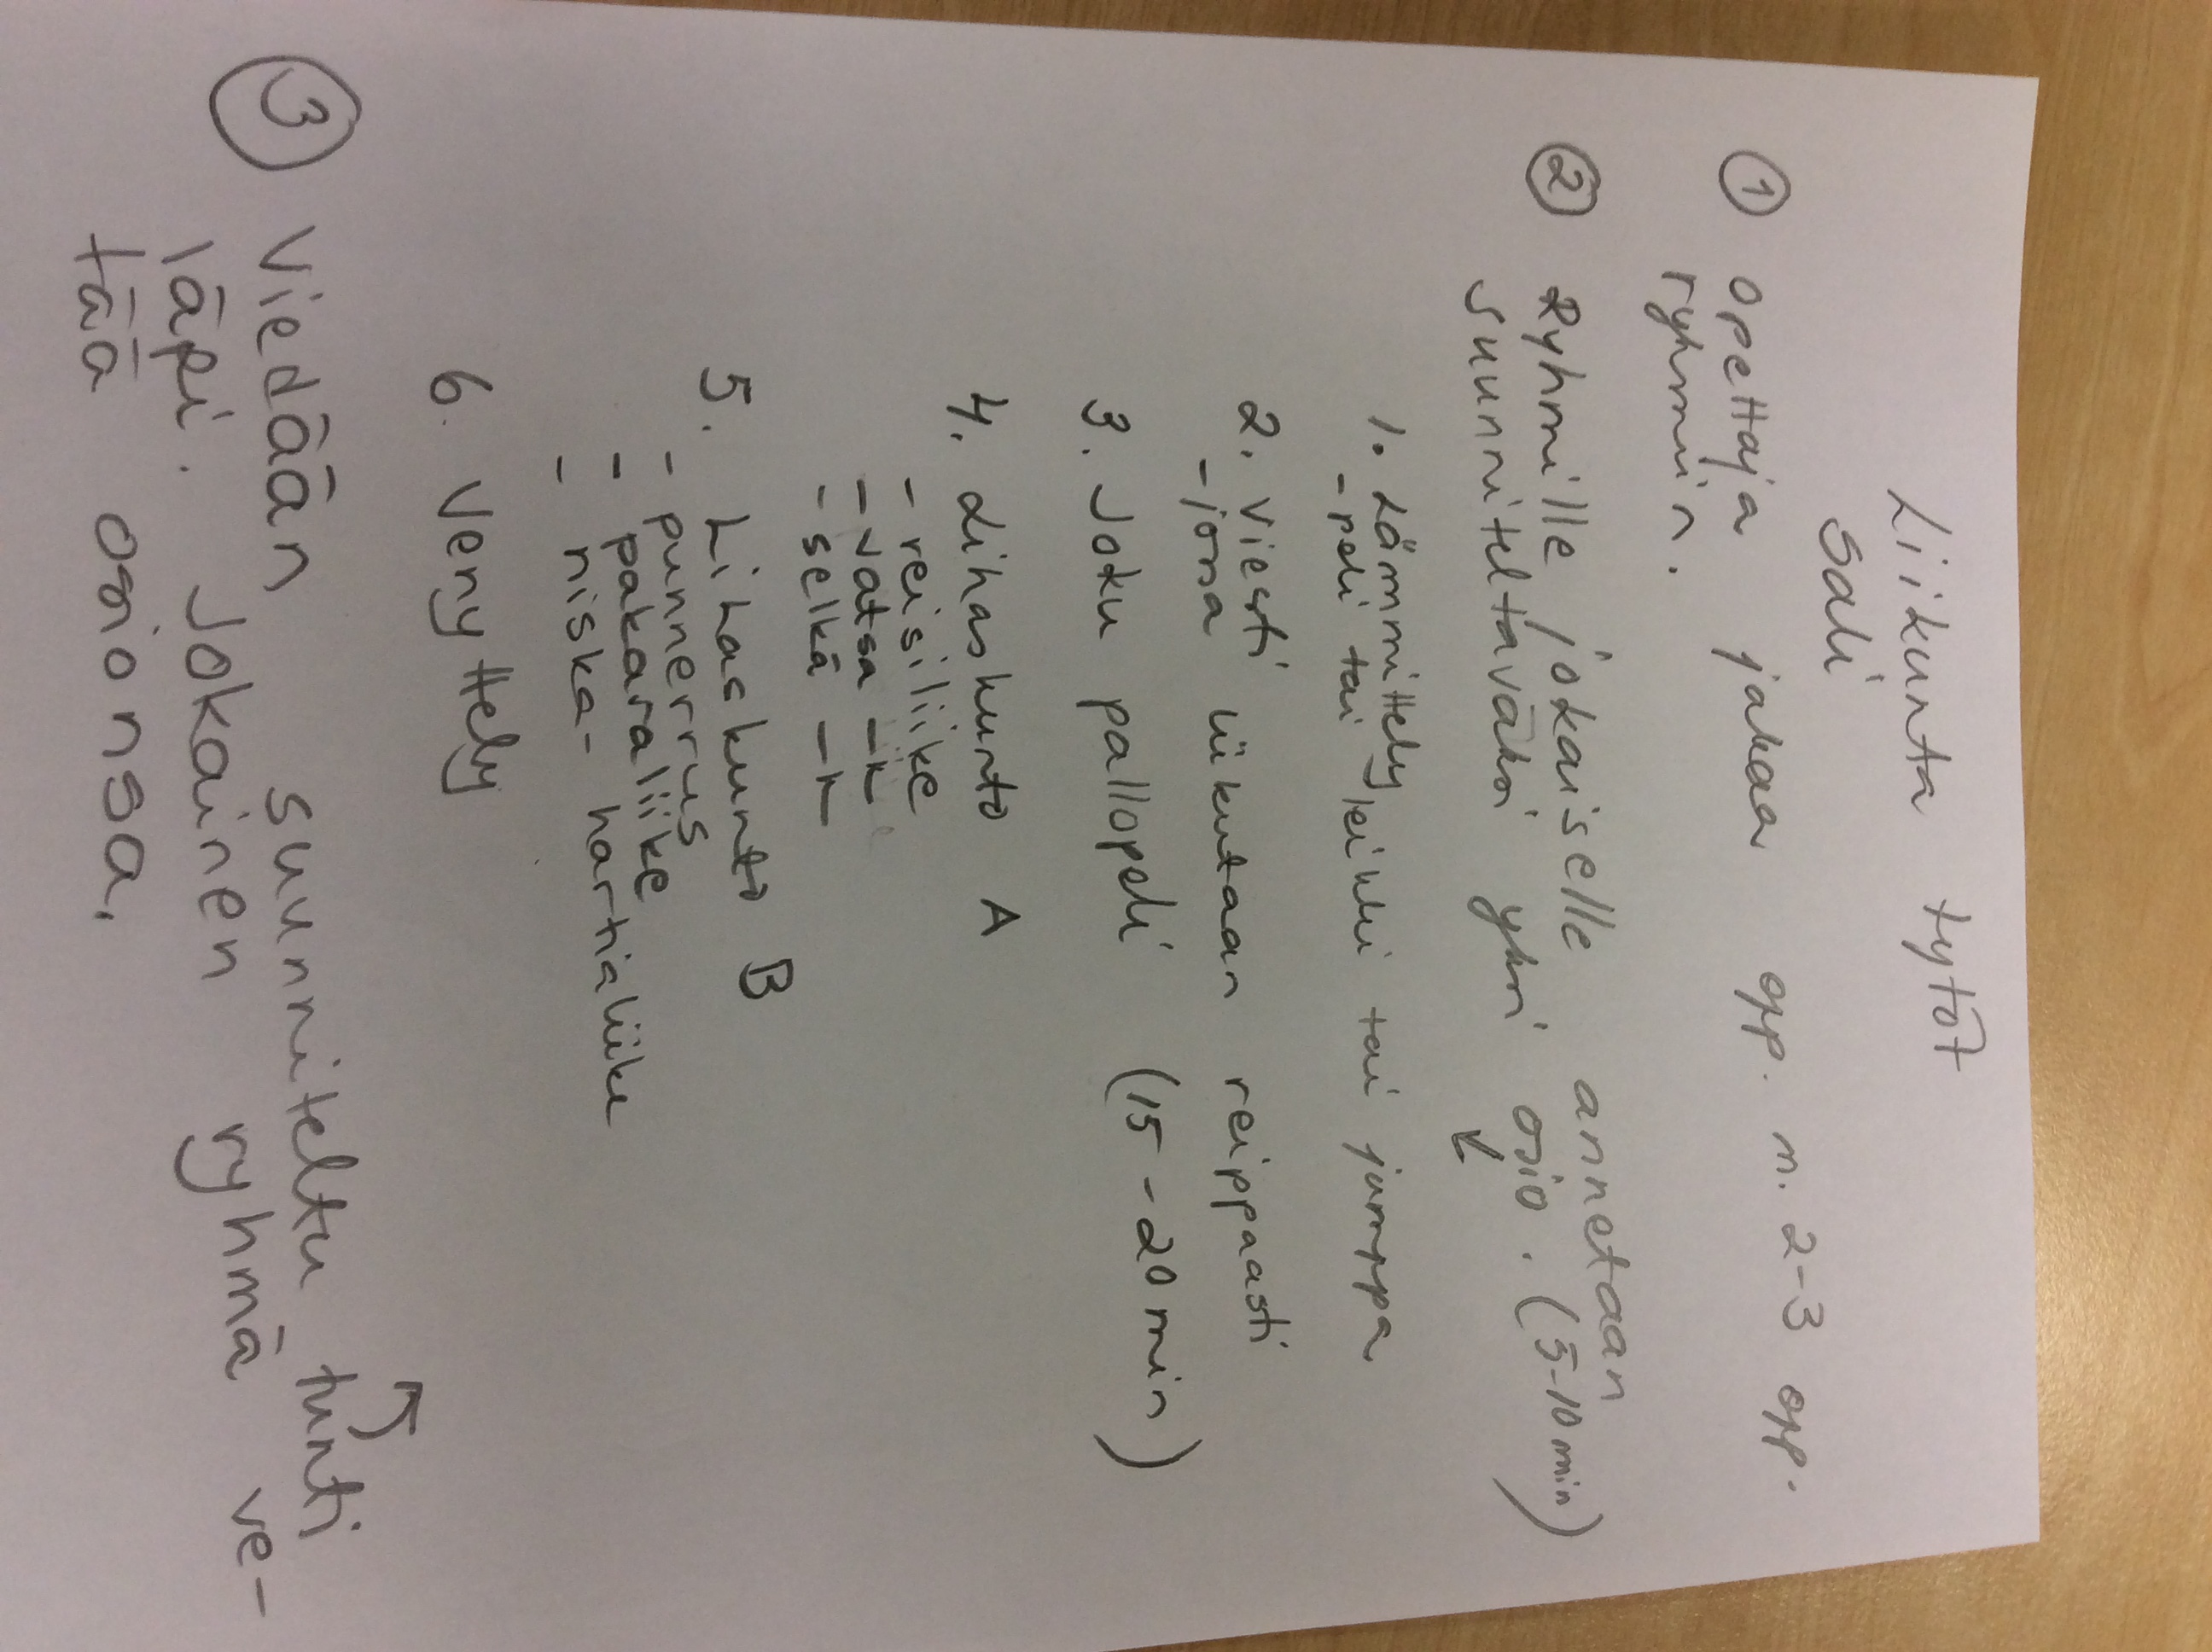 Liikunta tytöt
Sali
① Opettaja jakaa opp. n. 2-3 opp.
ryhmiin.
② Ryhmille / jokaiselle annetaan
suunniteltavaksi yksi osio. (5-10 min)
↙
1. Lämmittely
- peli tai tai leikki tai jumppa
2. Viesti
- jossa liikutaan reippaasti
3. Joku pallopeli (15-20 min)
4. Lihaskunto A
- reisiliike
- vatsa -"-
- selkä -"-
5. Lihaskunto B
- punnerrus
- pakaraliike
- niska- hartialiike
6. Venyttely
③ Viedään suunniteltu tunti
läpi. Jokainen ryhmä ve-
tää osionsa.